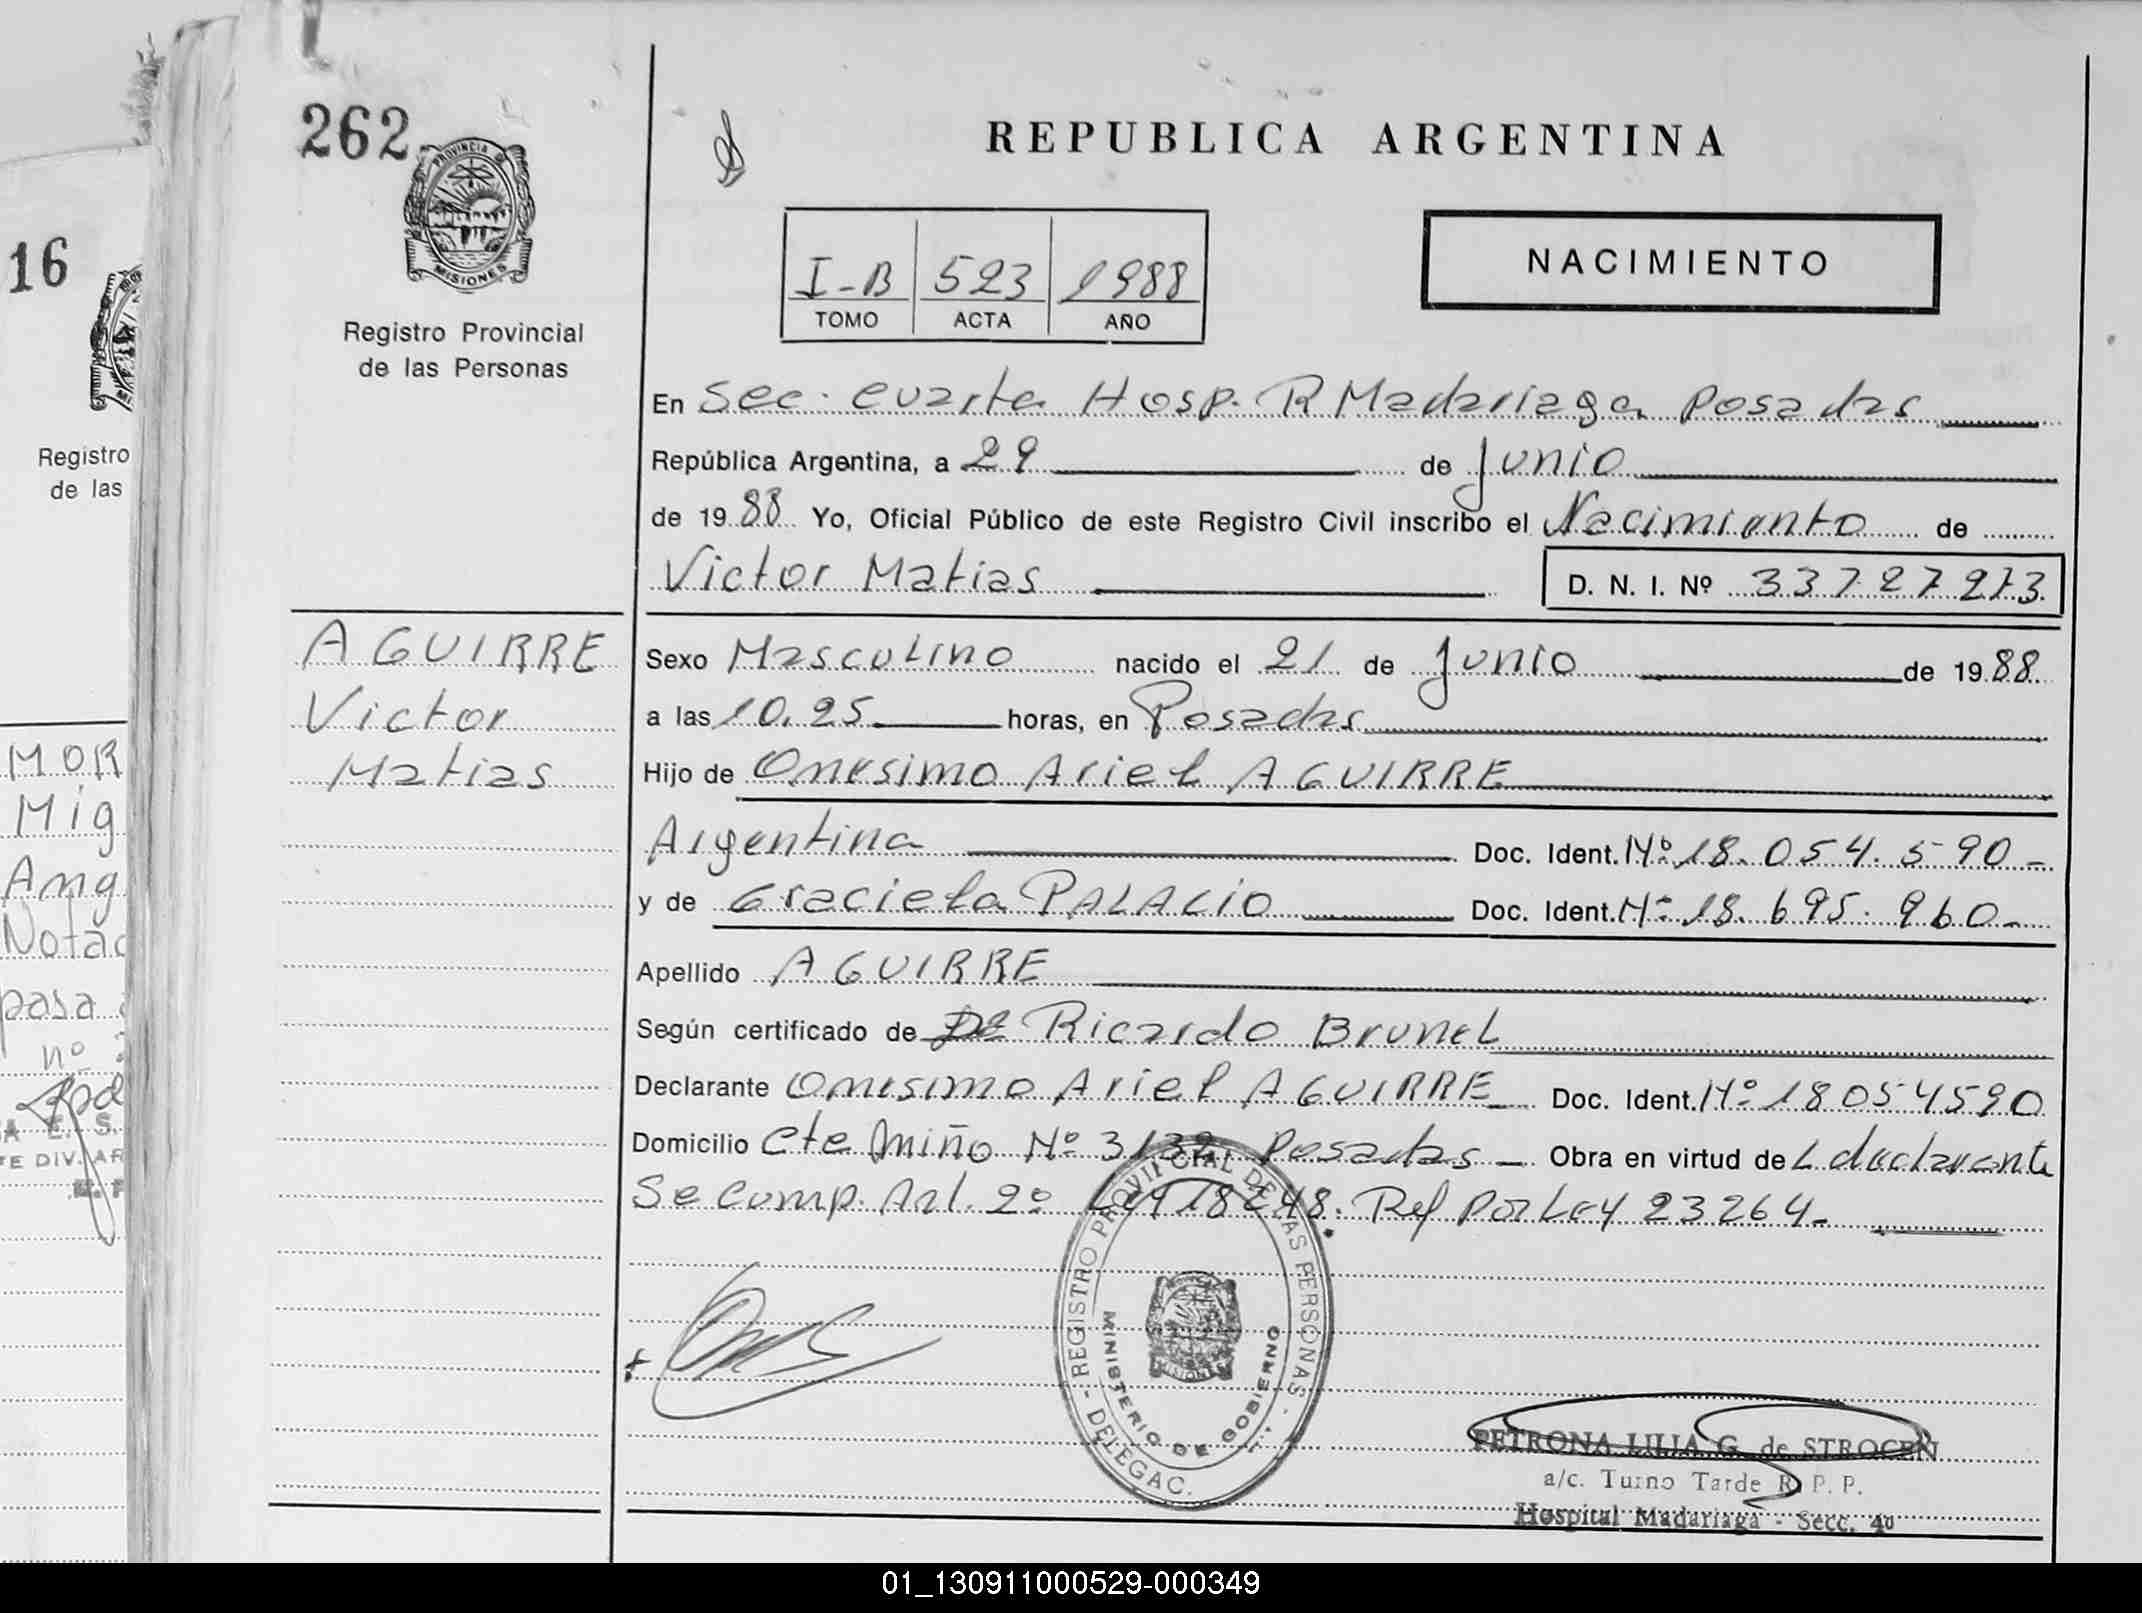 262
PROVINCIA DE
MISIONES
Registro Provincial
de las Personas
AGUIRRE
Victor
Matias
REPUBLICA ARGENTINA
I-B 523 1988
TOMO ACTA AÑO
NACIMIENTO
En Sec. cuarta Hosp. R Madariaga Posadas
República Argentina, a 29 de Junio
de 1988 Yo, Oficial Público de este Registro Civil inscribo el Nacimiento de
Victor Matias D. N. I. Nº 33727273
Sexo Masculino nacido el 21 de Junio de 1988
a las 10.25 horas, en Posadas
Hijo de Onesimo Ariel AGUIRRE
Argentina Doc. Ident. Nº 18.054.590-
y de Graciela PALACIO Doc. Ident. Nº 18.695.960-
Apellido AGUIRRE
Según certificado de DR Ricardo Brunel
Declarante Onesimo Ariel AGUIRRE Doc. Ident. Nº 18054590
Domicilio Cte Miño Nº 3132 Posadas - Obra en virtud de L declarante
Se Comp. Art. 2º Ley 18248. Ref por Ley 23264-
REGISTRO PROVINCIAL DE LAS PERSONAS - DELEGAC.
MINISTERIO DE GOBIERNO
PETRONA LILIA G. de STROCEN
a/c. Turno Tarde R. P. P.
Hospital Madariaga - Secc. 4º
16
Registro
de las
MOR
Mig
Ang
Notac
pasa
nº
E. S.
TE DIV. AR
01_130911000529-000349